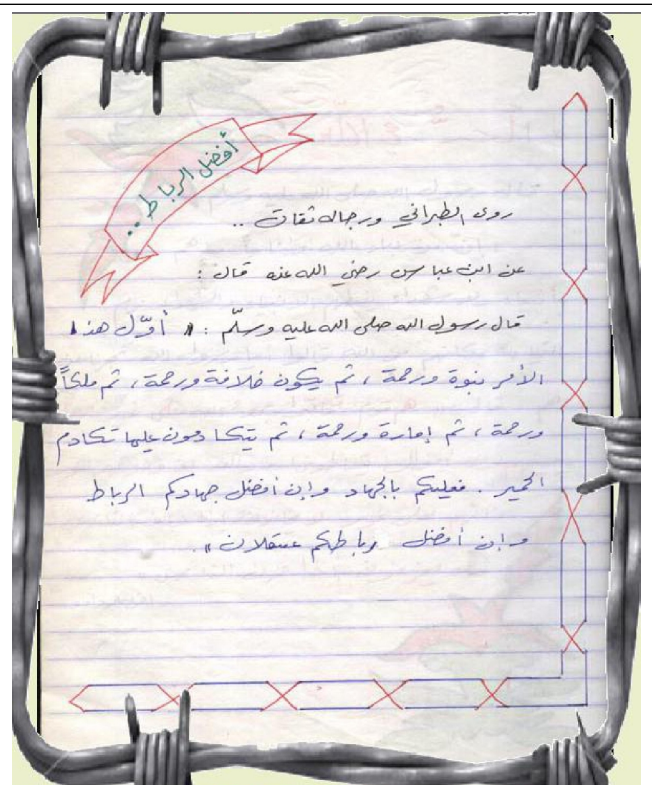 أفضل الرباط ..
روى الطبراني ورجاله ثقات ..
عن ابن عباس رضي الله عنه قال :
قال رسول الله صلى الله عليه وسلّم : « أوّل هذا
الأمر نبوة ورحمة ، ثم يكون خلافة ورحمة ، ثم ملكاً
ورحمة ، ثم إمارة ورحمة ، ثم يتكادمون عليها تكادم
الحمير . فعليكم بالجهاد وإن أفضل جهادكم الرباط
وإن أفضل رباطكم عسقلان » .